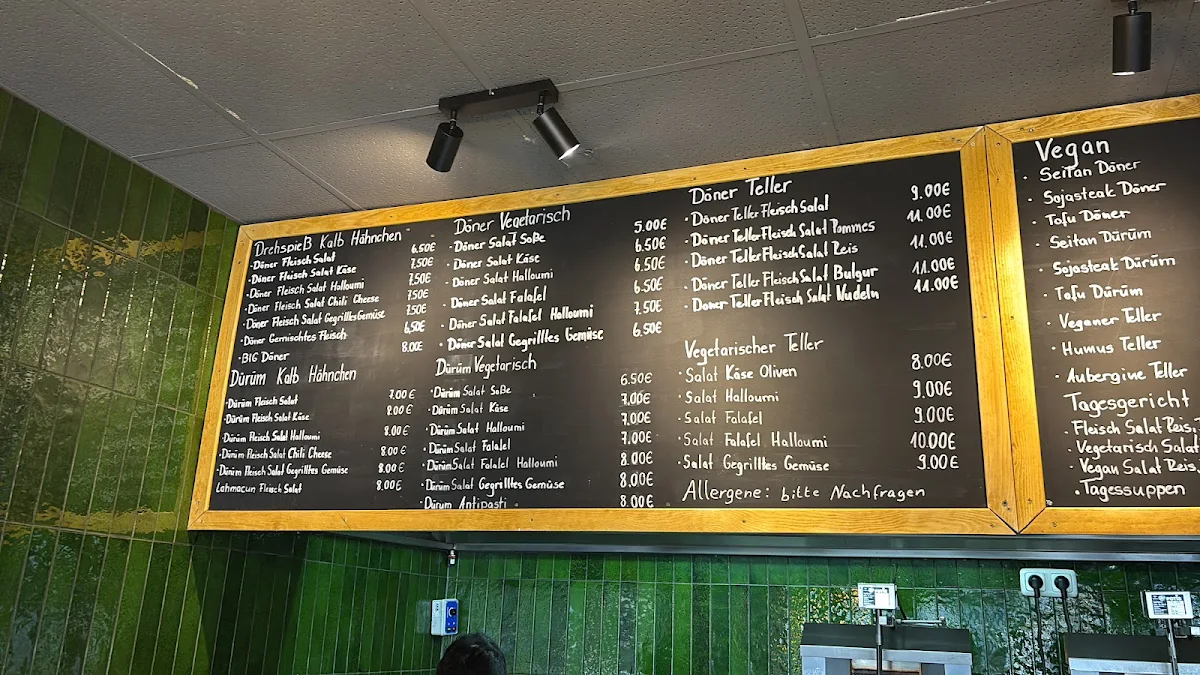 Drehspieß Kalb Hähnchen
· Döner Fleisch Salat 6.50€
· Döner Fleisch Salat Käse 7.50€
· Döner Fleisch Salat Halloumi 7.50€
· Döner Fleisch Salat Chili Cheese 7.50€
· Döner Fleisch Salat Gegrilltes Gemüse 7.50€
· Döner Gemischtes Fleisch 6.50€
· BIG Döner 8.00€
Dürüm Kalb Hähnchen
· Dürüm Fleisch Salat 7.00€
· Dürüm Fleisch Salat Käse 8.00€
· Dürüm Fleisch Salat Halloumi 8.00€
· Dürüm Fleisch Salat Chili Cheese 8.00€
· Dürüm Fleisch Salat Gegrilltes Gemüse 8.00€
Lahmacun Fleisch Salat 8.00€
Döner Vegetarisch
· Döner Salat Soße 5.00€
· Döner Salat Käse 6.50€
· Döner Salat Halloumi 6.50€
· Döner Salat Falafel 6.50€
· Döner Salat Falafel Halloumi 7.50€
· Döner Salat Gegrilltes Gemüse 6.50€
Dürüm Vegetarisch
· Dürüm Salat Soße 6.50€
· Dürüm Salat Käse 7.00€
· Dürüm Salat Halloumi 7.00€
· Dürüm Salat Falafel 7.00€
· Dürüm Salat Falafel Halloumi 8.00€
· Dürüm Salat Gegrilltes Gemüse 8.00€
· Dürum Antipasti 8.00€
Döner Teller
· Döner Teller Fleisch Salat 9.00€
· Döner Teller Fleisch Salat Pommes 11.00€
· Döner Teller Fleisch Salat Reis 11.00€
· Döner Teller Fleisch Salat Bulgur 11.00€
· Döner Teller Fleisch Salat Nudeln 11.00€
Vegetarischer Teller
· Salat Käse Oliven 8.00€
· Salat Halloumi 9.00€
· Salat Falafel 9.00€
· Salat Falafel Halloumi 10.00€
· Salat Gegrilltes Gemüse 9.00€
Allergene: bitte Nachfragen
Vegan
· Seitan Döner
· Sojasteak Döner
· Tofu Döner
· Seitan Dürüm
· Sojasteak Dürüm
· Tofu Dürüm
· Veganer Teller
· Humus Teller
· Aubergine Teller
Tagesgericht
· Fleisch Salat Reis
· Vegetarisch Salat
· Vegan Salat Reis
· Tagessuppen